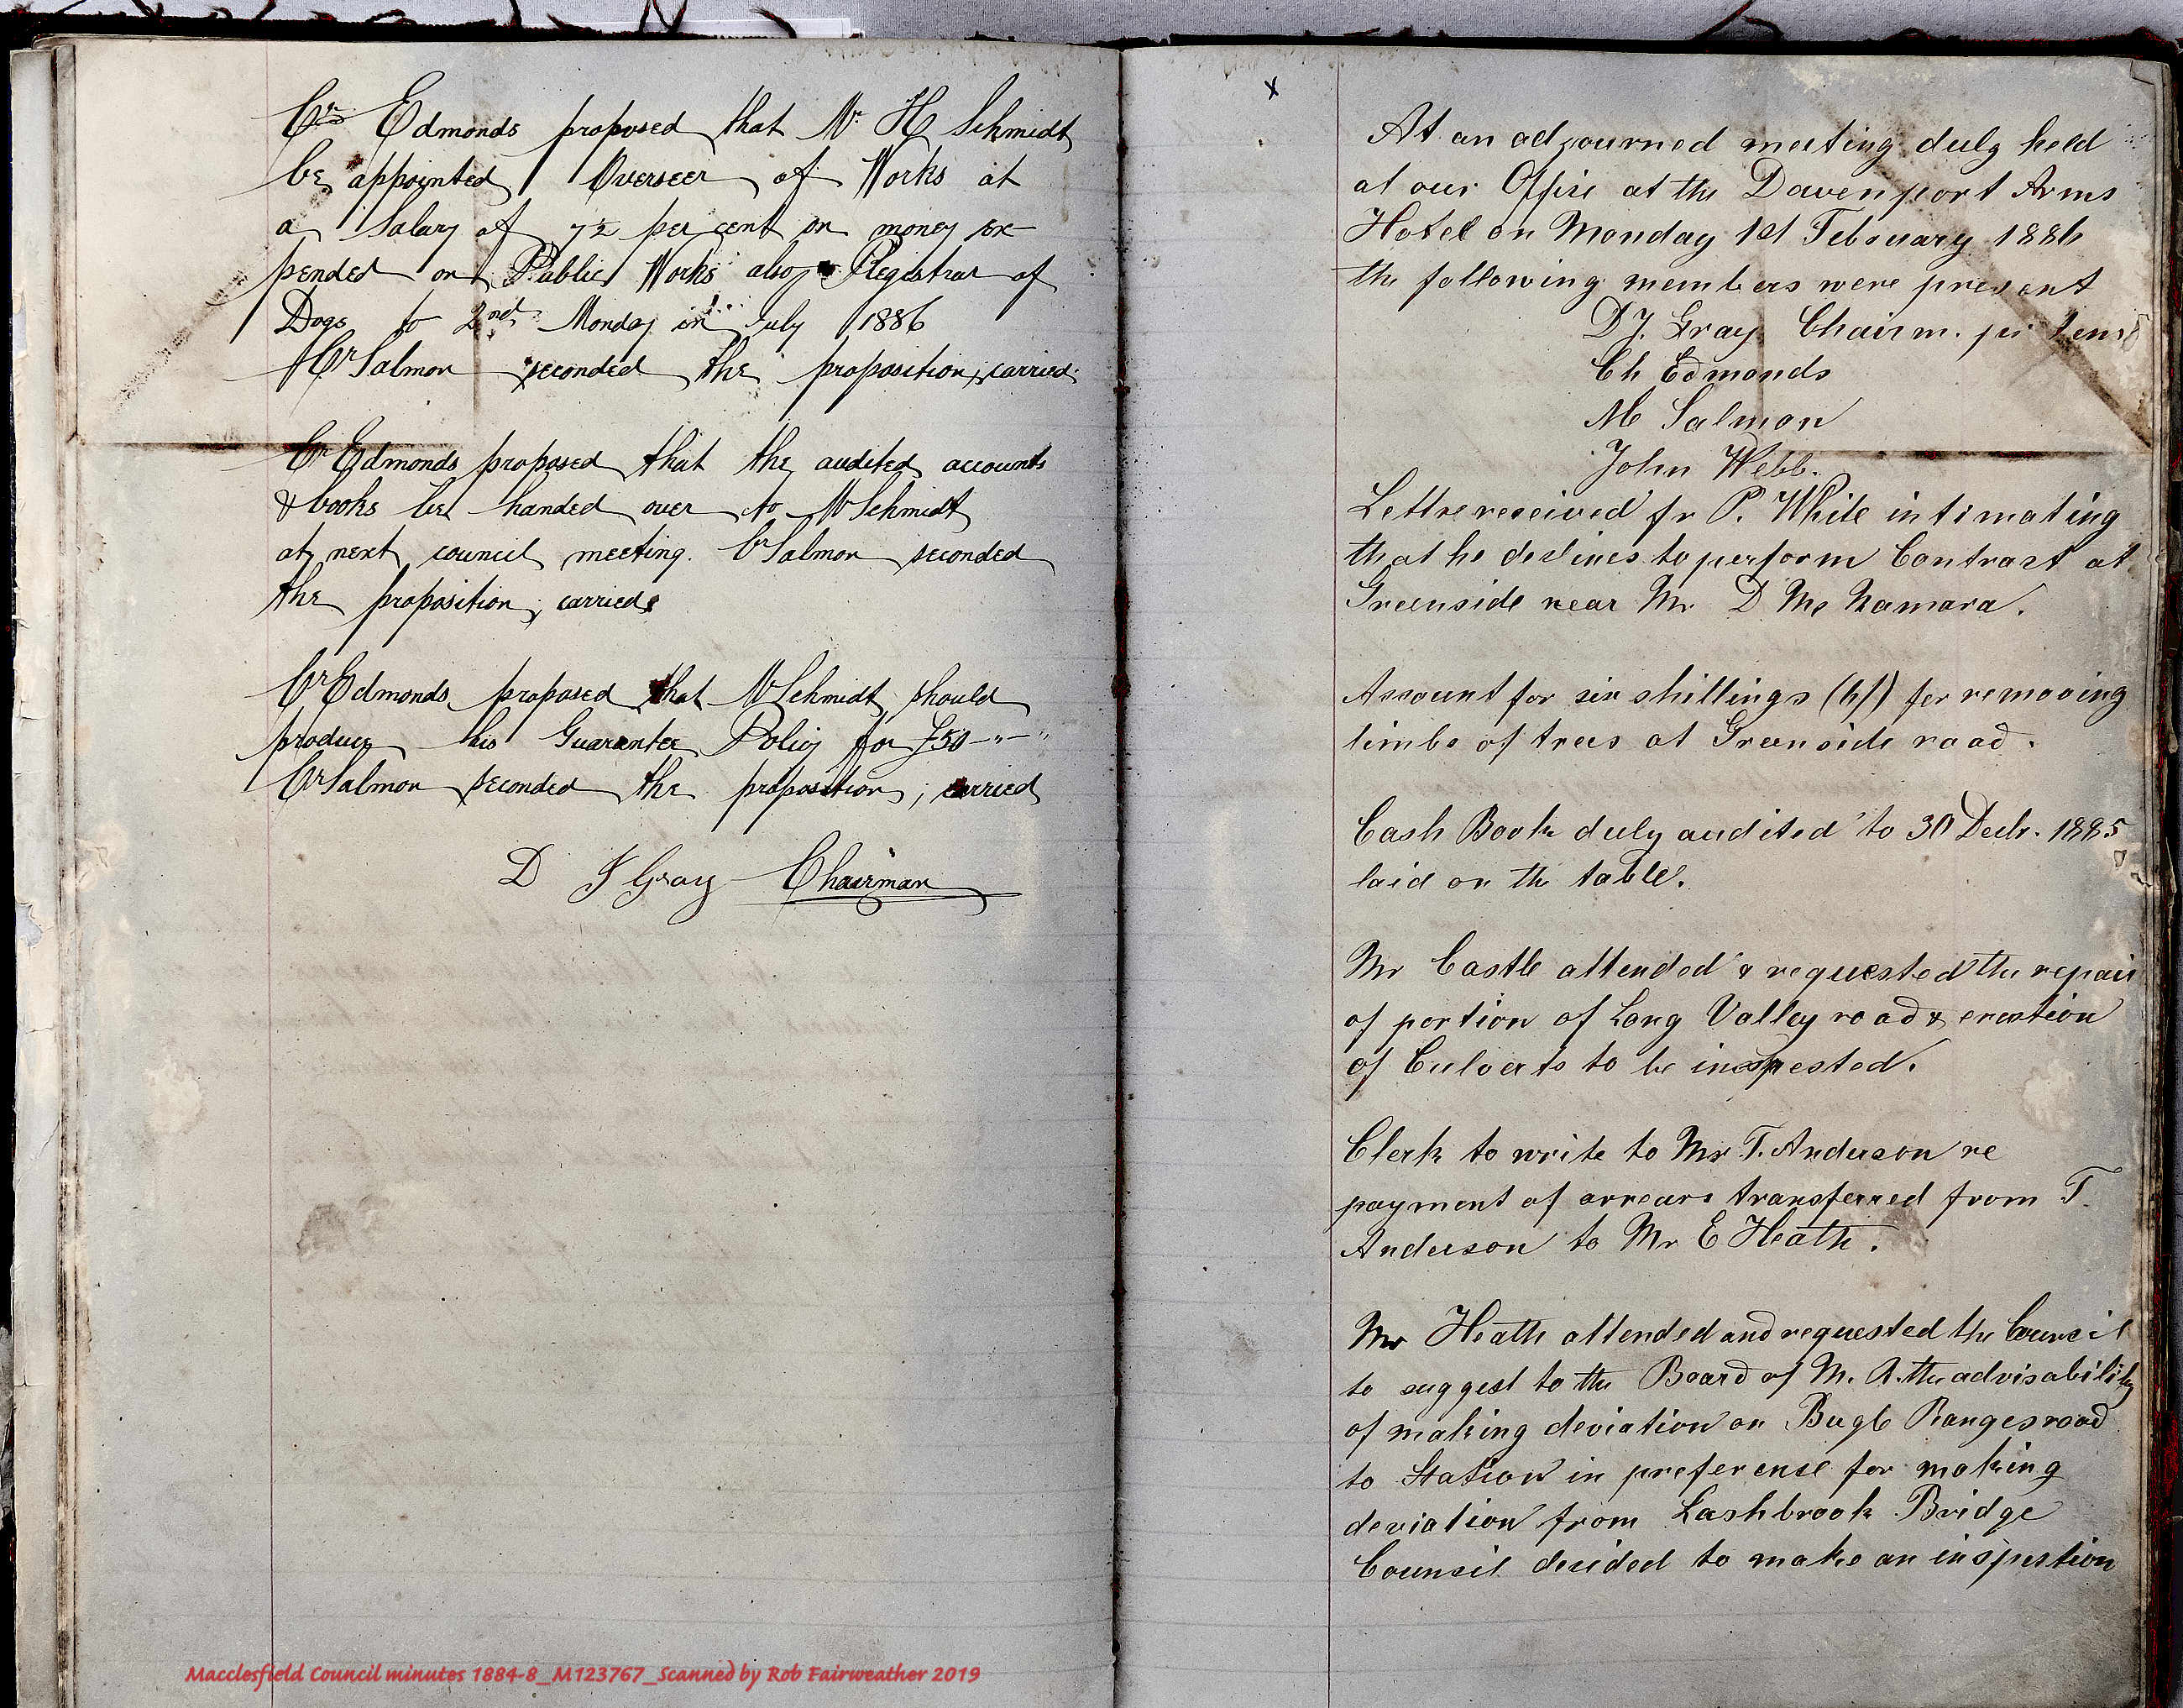 Cr Edmonds proposed that Mr H Schmidt
be appointed Overseer of Works at
a Salary of 7½ per cent on money ex-
pended on Public Works also Registrar of
Dogs to 2nd Monday in July 1886
Cr Salmon seconded the proposition, carried
Cr Edmonds proposed that the audited accounts
& books be handed over to Mr Schmidt
at next council meeting. Cr Salmon seconded
the proposition, carried
Cr Edmonds proposed that Mr Schmidt should
produce his Guarantee Policy for £50-"-"
Cr Salmon seconded the proposition; carried
D J Gray Chairman
x
At an adjourned meeting duly held
at our Office at the Davenport Arms
Hotel on Monday 1st February 1886
the following members were present
D J. Gray Chairm. pr tem
Ch Edmonds
M Salmon
John Webb.
Lettre received fr P. White intimating
that he declines to perform Contract at
Greenside near Mr D Mc Namara.
Account for six shillings (6/) for removing
limbs of trees at Greenside road.
Cash Book duly audited to 30 Decbr. 1885
laid on the table.
Mr Castle attended & requested the repair
of portion of Long Valley road & erection
of Culverts to be inspected.
Clerk to write to Mr T. Anderson re
payment of arrears transferred from T.
Anderson to Mr E Heath.
Mr Heath attended and requested the Council
to suggest to the Board of M. R. the advisability
of making deviation on Bugle Ranges road
to Station in preference for making
deviation from Lashbrook Bridge
Council decided to make an inspection
Macclesfield Council minutes 1884-8_M123767_Scanned by Rob Fairweather 2019